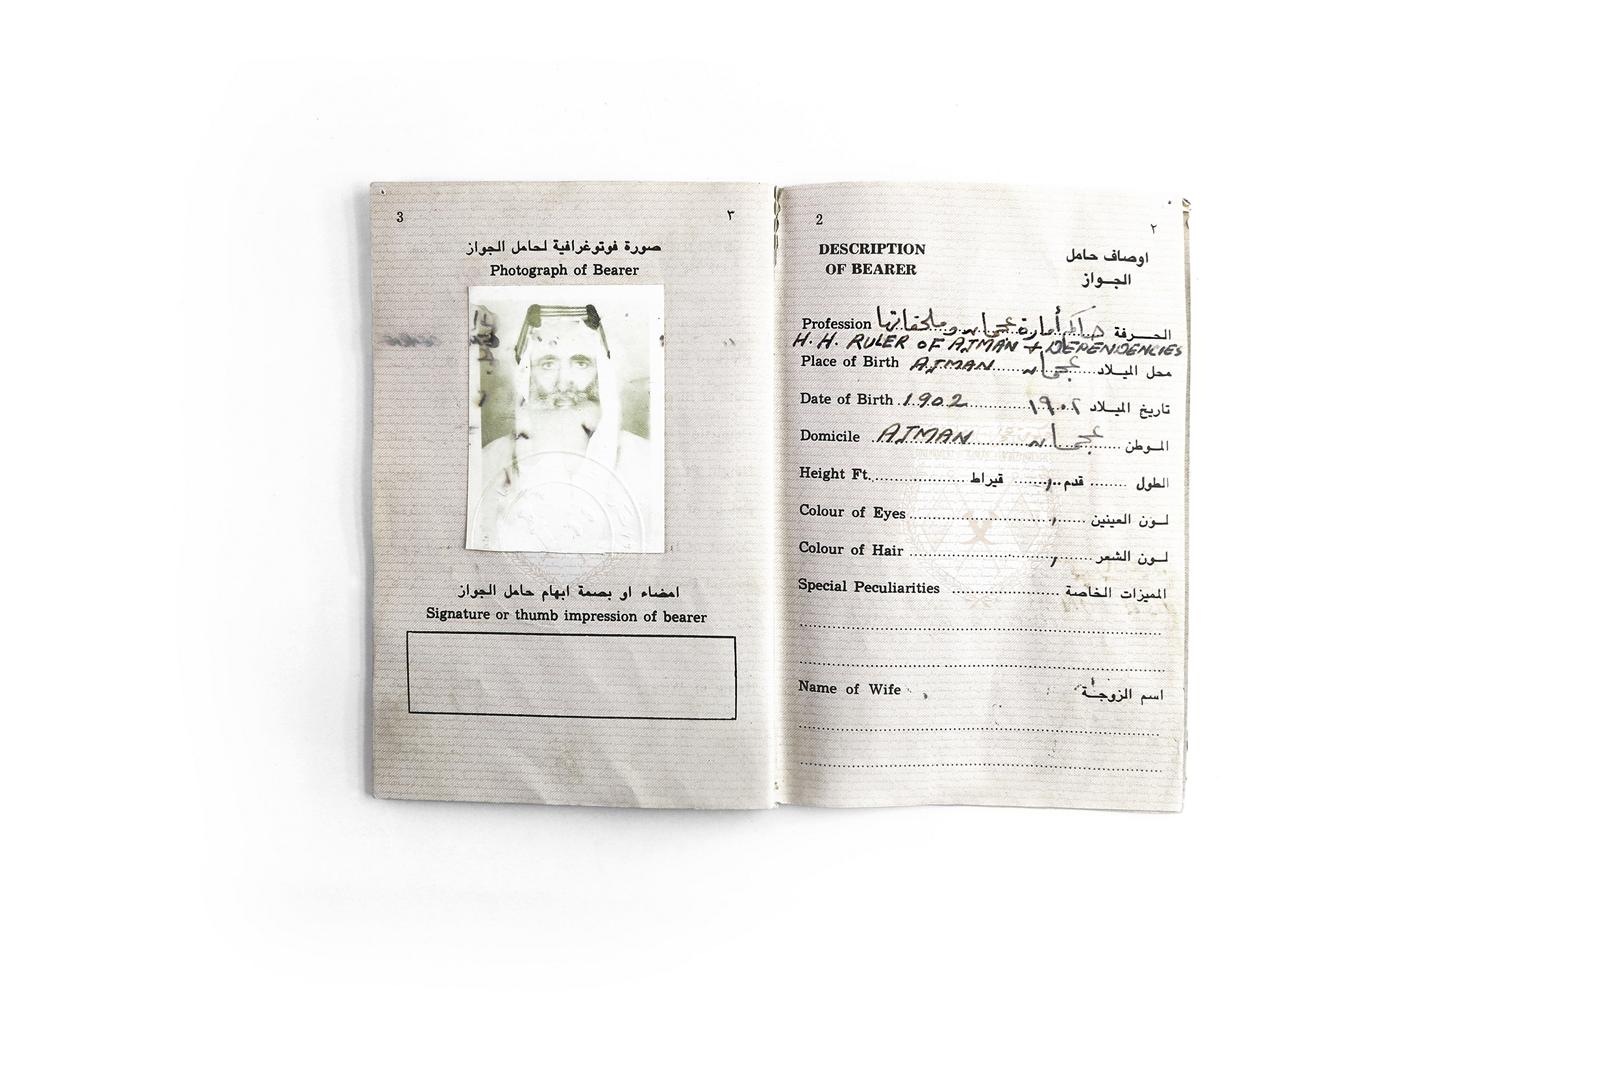 3 ٣
صورة فوتوغرافية لحامل الجواز
Photograph of Bearer
امضاء او بصمة ابهام حامل الجواز
Signature or thumb impression of bearer
2 ٢
DESCRIPTION OF BEARER
اوصاف حامل الجواز
Profession حاكم أمارة عجمان وملحقاتها الحرفة
H.H. RULER OF AJMAN + DEPENDENCIES
Place of Birth AJMAN عجمان محل الميلاد
Date of Birth 1902 ١٩٠٢ تاريخ الميلاد
Domicile AJMAN عجمان الموطن
Height Ft. قيراط قدم الطول
Colour of Eyes لون العينين
Colour of Hair لون الشعر
Special Peculiarities المميزات الخاصة
Name of Wife اسم الزوجة